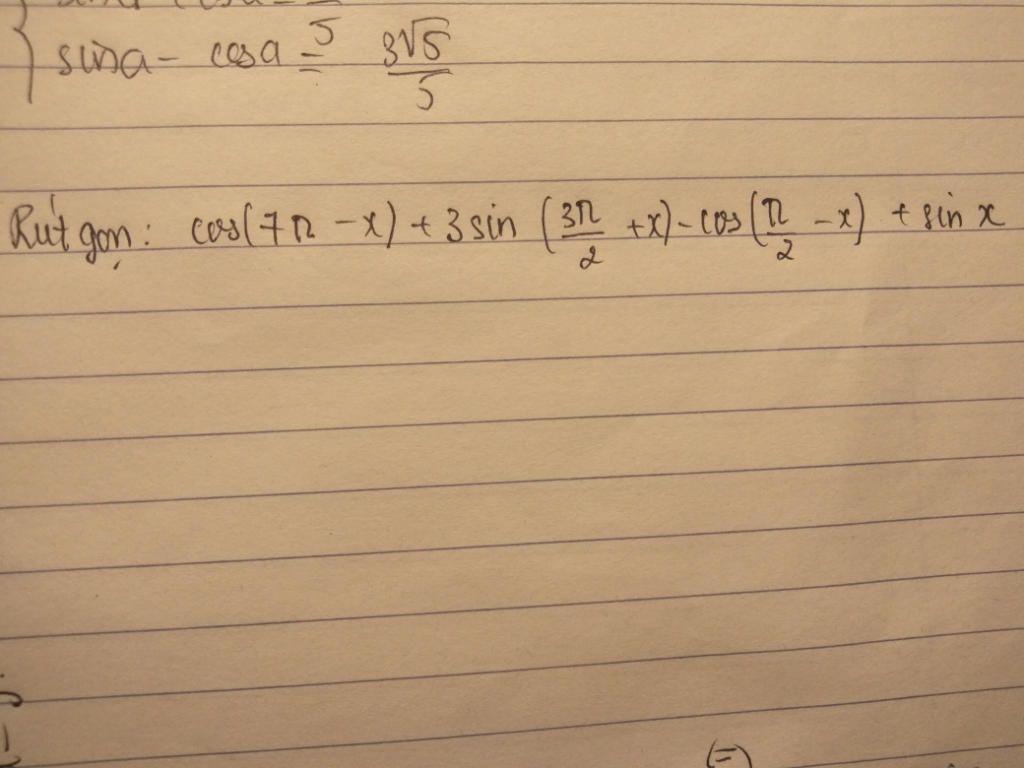 sina - cosa = 3√5/5
Rút gọn: cos(7π - x) + 3 sin (3π/2 + x) - cos(π/2 - x) + sin x
(=)